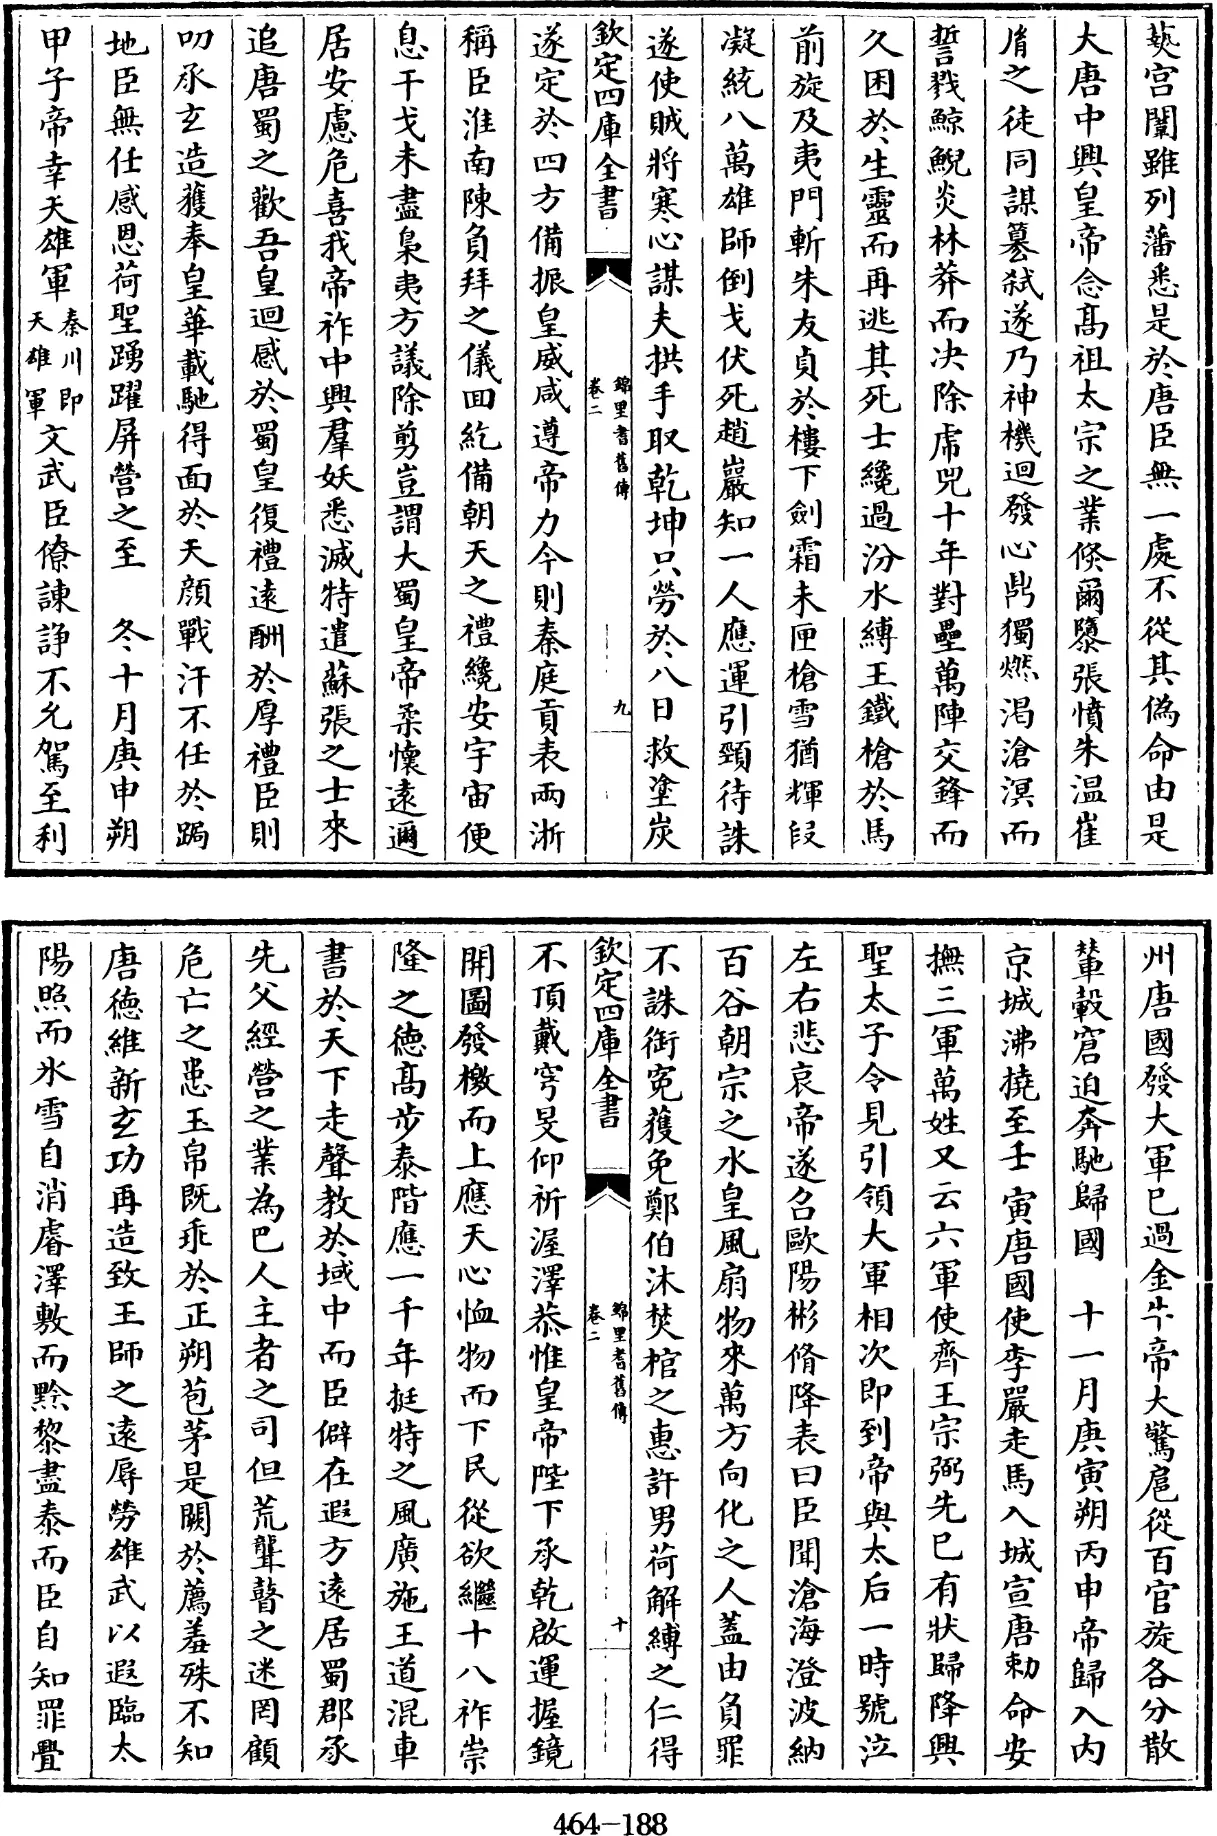 爇宫闈雖列藩悉是於唐臣無一處不從其偽命由是
大唐中興皇帝念髙祖太宗之業倐爾隳張憤朱温崔
𦙍之徒同謀簒弑遂乃神機迴發心鼎獨燃渇滄溟而
誓戮鯨鯢炎林莽而决除虎兕十年對壘萬陣交鋒而
久困於生靈而再逃其死士纔過汾水縛王鐵槍於馬
前旋及夷門斬朱友貞於樓下劍霜未匣槍雪猶輝段
凝統八萬雄師倒戈伏死趙巖知一人應運引頸待誅
遂使賊將寒心謀夫拱手取乾坤只勞於八日救塗炭
欽定四庫全書
錦里耆舊傳
卷二
九
遂定於四方備振皇威咸遵帝力今則秦庭貢表兩浙
稱臣淮南陳負拜之儀回紇備朝天之禮纔安宇宙便
息干戈未盡梟夷方議除剪豈謂大蜀皇帝柔懷遠邇
居安慮危喜我帝祚中興羣妖悉滅特遣蘇張之士來
追唐蜀之歡吾皇迴感於蜀皇復禮遠酬於厚禮臣則
叨承玄造獲奉皇華載馳得面於天顔戰汗不任於跼
地臣無任感恩荷聖踴躍屏營之至　冬十月庚申朔
甲子帝幸天雄軍秦川即天雄軍文武臣僚諫諍不允駕至利
州唐國發大軍已過金牛帝大驚扈從百官旋各分散
輦轂窘迫奔馳歸國　十一月庚寅朔丙申帝歸入内
京城沸撓至壬寅唐國使李嚴走馬入城宣唐勅命安
撫三軍萬姓又云六軍使齊王宗弼先已有狀歸降興
聖太子令見引領大軍相次即到帝與太后一時號泣
左右悲哀帝遂召歐陽彬脩降表曰臣聞滄海澄波納
百谷朝宗之水皇風扇物來萬方向化之人蓋由負罪
不誅銜寃獲免鄭伯沐焚棺之恵許男荷解縛之仁得
欽定四庫全書
錦里耆舊傳
卷二
十
不頂戴穹旻仰祈渥澤恭惟皇帝陛下承乾啟運握鏡
開圖發檄而上應天心恤物而下民從欲繼十八祚崇
隆之徳髙步泰階應一千年挺特之風廣施王道混車
書於天下走聲教於域中而臣僻在遐方遠居蜀郡承
先父經營之業為巴人主者之司但荒聾瞽之迷罔顧
危亡之患玉帛既乖於正朔苞茅是闕於薦羞殊不知
唐徳維新玄功再造致王師之遠辱勞雄武以遐臨太
陽照而氷雪自消睿澤敷而黔黎盡泰而臣自知罪舋
464-188